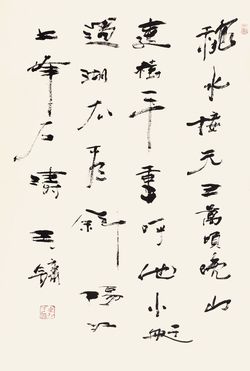 龝水接天三萬頃晚山
連樹一千重呼他小艇
過湖去臥看斜陽江
上峰石濤王鏞